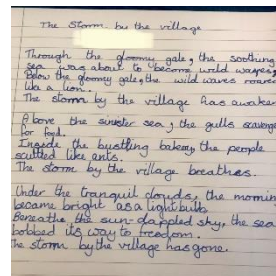 The Storm by the village
Through the gloomy gale, the soothing
sea was about to become wild waves,
Below the gloomy gale, the wild waves roared
like a lion.
The storm by the village has awoken
Above the sinister sea, the gulls scavenge
for food.
Inside the bustling bakery the people
scuttled like ants.
The storm by the village breathes.
Under the tranquil clouds, the morning
became bright as a lightbulb,
Beneath the sun-dappled sky, the sea
bobbed its way to freedom.
The storm by the village has gone.